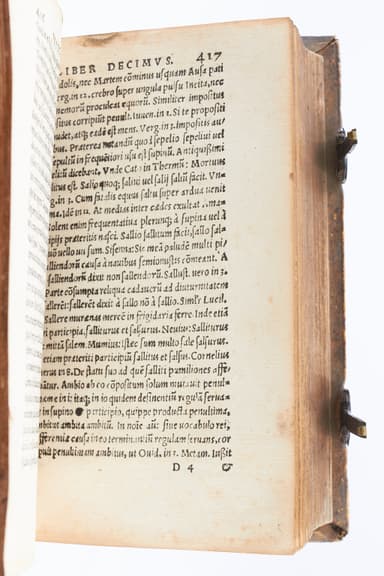 LIBER DECIMVS. 417
dolis, nec Martem cōminus usquam Ausa pati
erg. in 12. crebro super ungula pulsu Incita, nec
nemorū proculcat equorū. Similiter impositus
situs corripiunt penult. Iuuen. in 1. Si te propositi
pudet, atq; eadē est mens. Verg. in 3. impositis au/
bus. Præterea notandū quo sepelio sepeliui uel
sepultū in frequētiori usu est supinū. Antiquissimi
dicebant. Vnde Cat: in Thermū: Mortuus
litus est. Salio quoq; saliui uel salij saltū facit. Vn-
g. in 3. Cum fatalis equus saltu super ardua uenit
ma. Idē in 12. At medias inter cædes exultat Ama-
olent enim frequentatiua plerunq; à supina uel à
cipijs præteritis nasci. Sallio sallitum facit, sallo sal-
uel sum. Sisenna: Sic mea paludē multi pi/
salliendorū causa à nauibus semionustis cōmeant. A
salliendorū dixit non sallendorū. Sallust. uero in 3.
Parte cōsumpta reliqua cadauerū ad diuturnitatem
sallerēt: sallerēt dixit à sallo nō à sallio. Simlr Lucil.
Sallere murænas mercē in frigidaria ferre. Inde etiā
participia, salliturus et salsurus. Neuius: Salliturus
mittā salem. Mumius: istæc sum multo sale salsurus.
etiam præteriti participiū sallitus et salsus. Cornelius
erus in 8. De statu suo ad quē salliti pumiliones affe-
antur. Ambio ab eo cōpositum solum mutauit penul-
am e in i: itaq; in io quidem desinentiū regulā serua-
in supino & participio, quippe producta penultima,
ambitus ambita ambitū. In noīe aūt siue uocabulo rei,
ifferentiæ causa in eo terminantiū regulam seruans, cor
ripuit penultimam ambitus, ut Ouid. in 1. Metam. Iussit
D 4 &